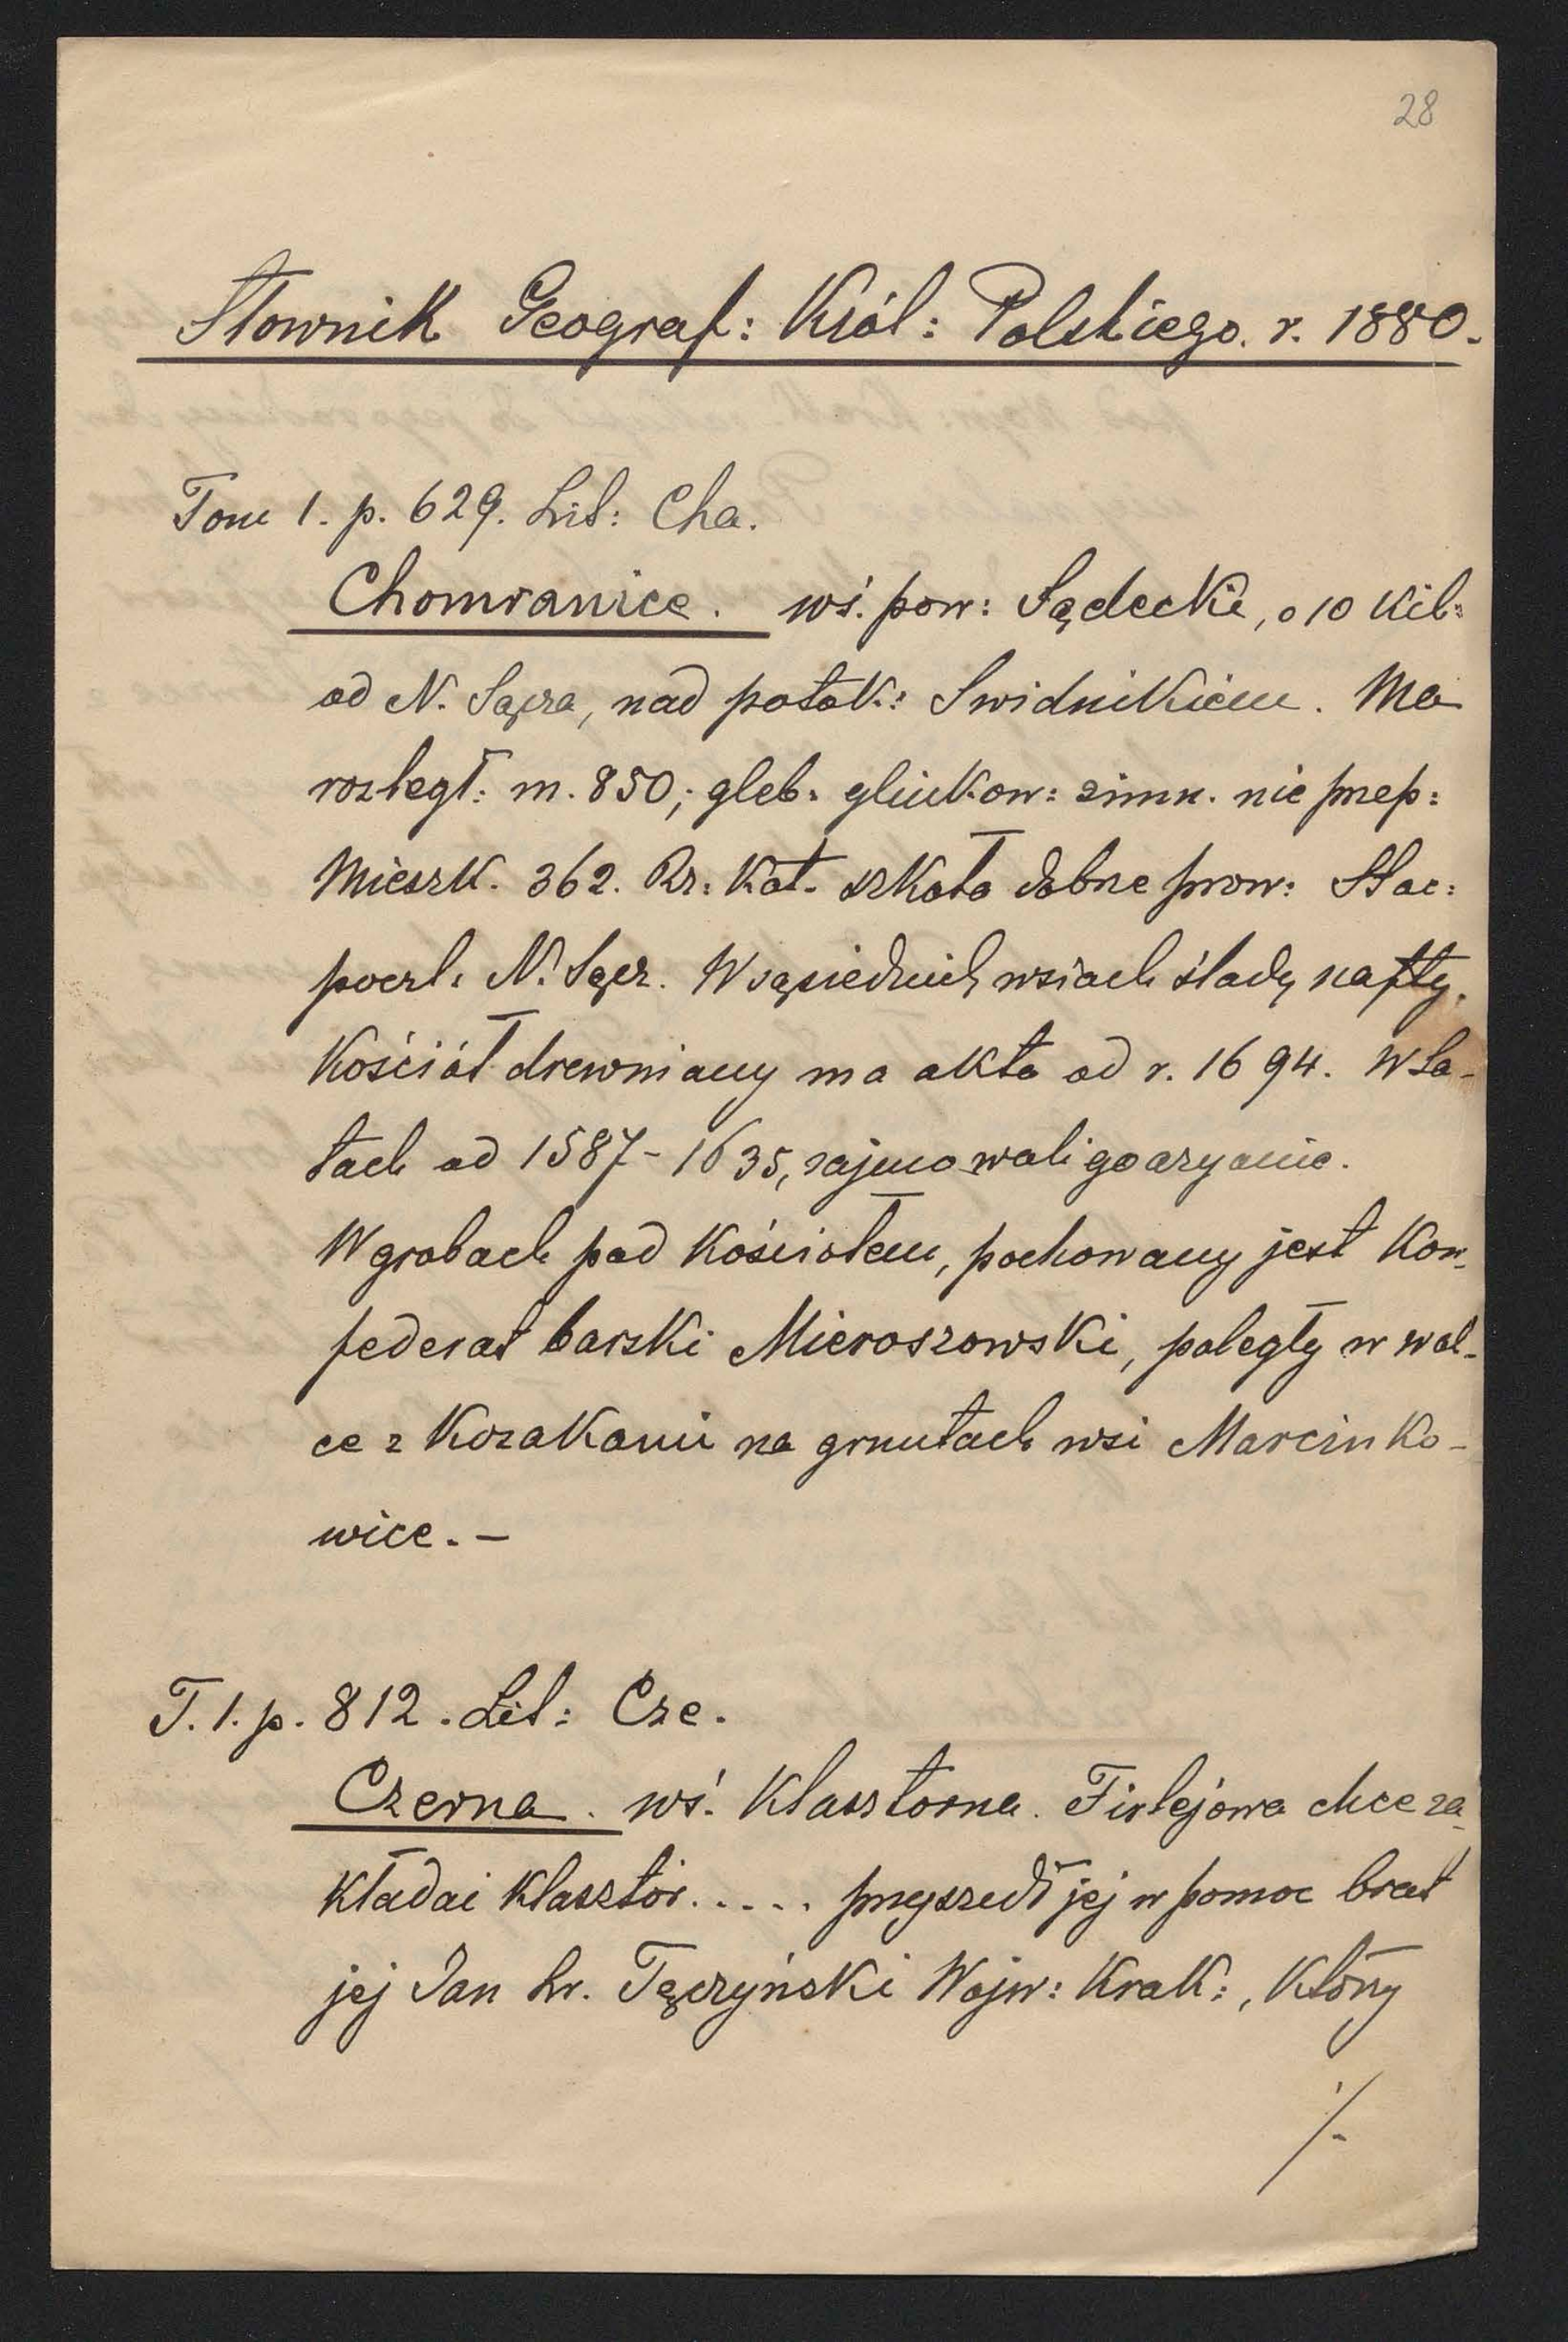 28
Słownik Geograf: Król: Polskiego. r. 1880.
Tom 1. p. 629. Lit: Cha.
Chomranice. wś. pow: Sądecki, o 10 kil:
od N. Sącza, nad potok: Swidnikiem. Ma
rozległ: m. 850; gleb. glinkow: zimn. nie przep:
Mieszk. 362. Rz: Kat. szkoła dobrze prow: Stac:
poczt. N. Sącz. W sąsiednich wsiach ślady nafty.
Kościół drewniany ma akta od r. 1694. W la-
tach od 1587 - 1635, zajmowali go aryanie.
W grobach pod kościołem, pochowany jest kon-
federat barski Mieroszowski, poległy w wal-
ce z Kozakami na gruntach wsi Marcinko-
wice. -
T. 1. p. 812. Lit: Cze.
Czerna. wś. klasztorna. Firlejowa chce za-
kładać klasztór..... przyszedł jej w pomoc brat
jej Jan hr. Tęczyński Wojw: Krak:, który
./-